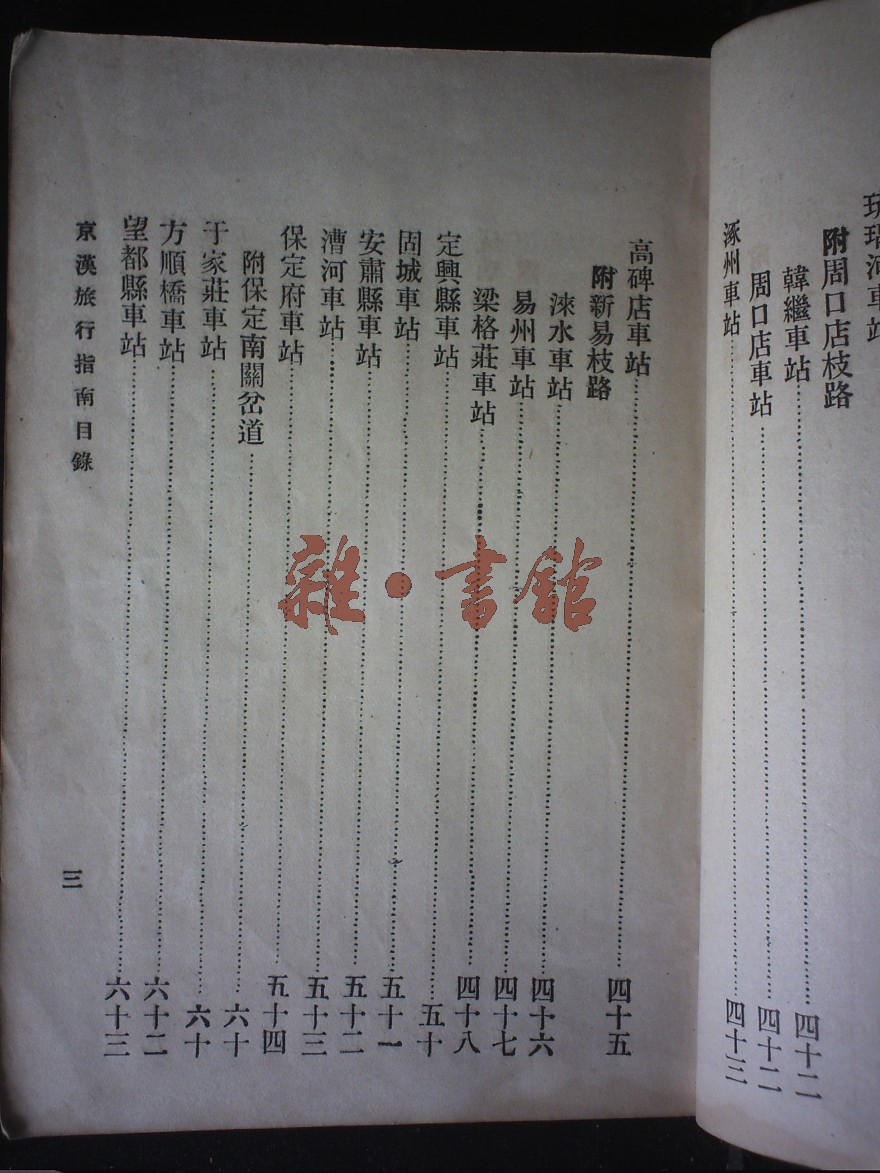 河車站
附周口店枝路
韓繼車站 四十二
周口店車站 四十二
涿州車站 四十三
高碑店車站 四十五
附新易枝路
淶水車站 四十六
易州車站 四十七
梁格莊車站 四十八
定興縣車站 五十
固城車站 五十一
安肅縣車站 五十二
漕河車站 五十三
保定府車站 五十四
附保定南關岔道 六十
于家莊車站 六十
方順橋車站 六十二
望都縣車站 六十三
京漢旅行指南目錄
三
雜·書館